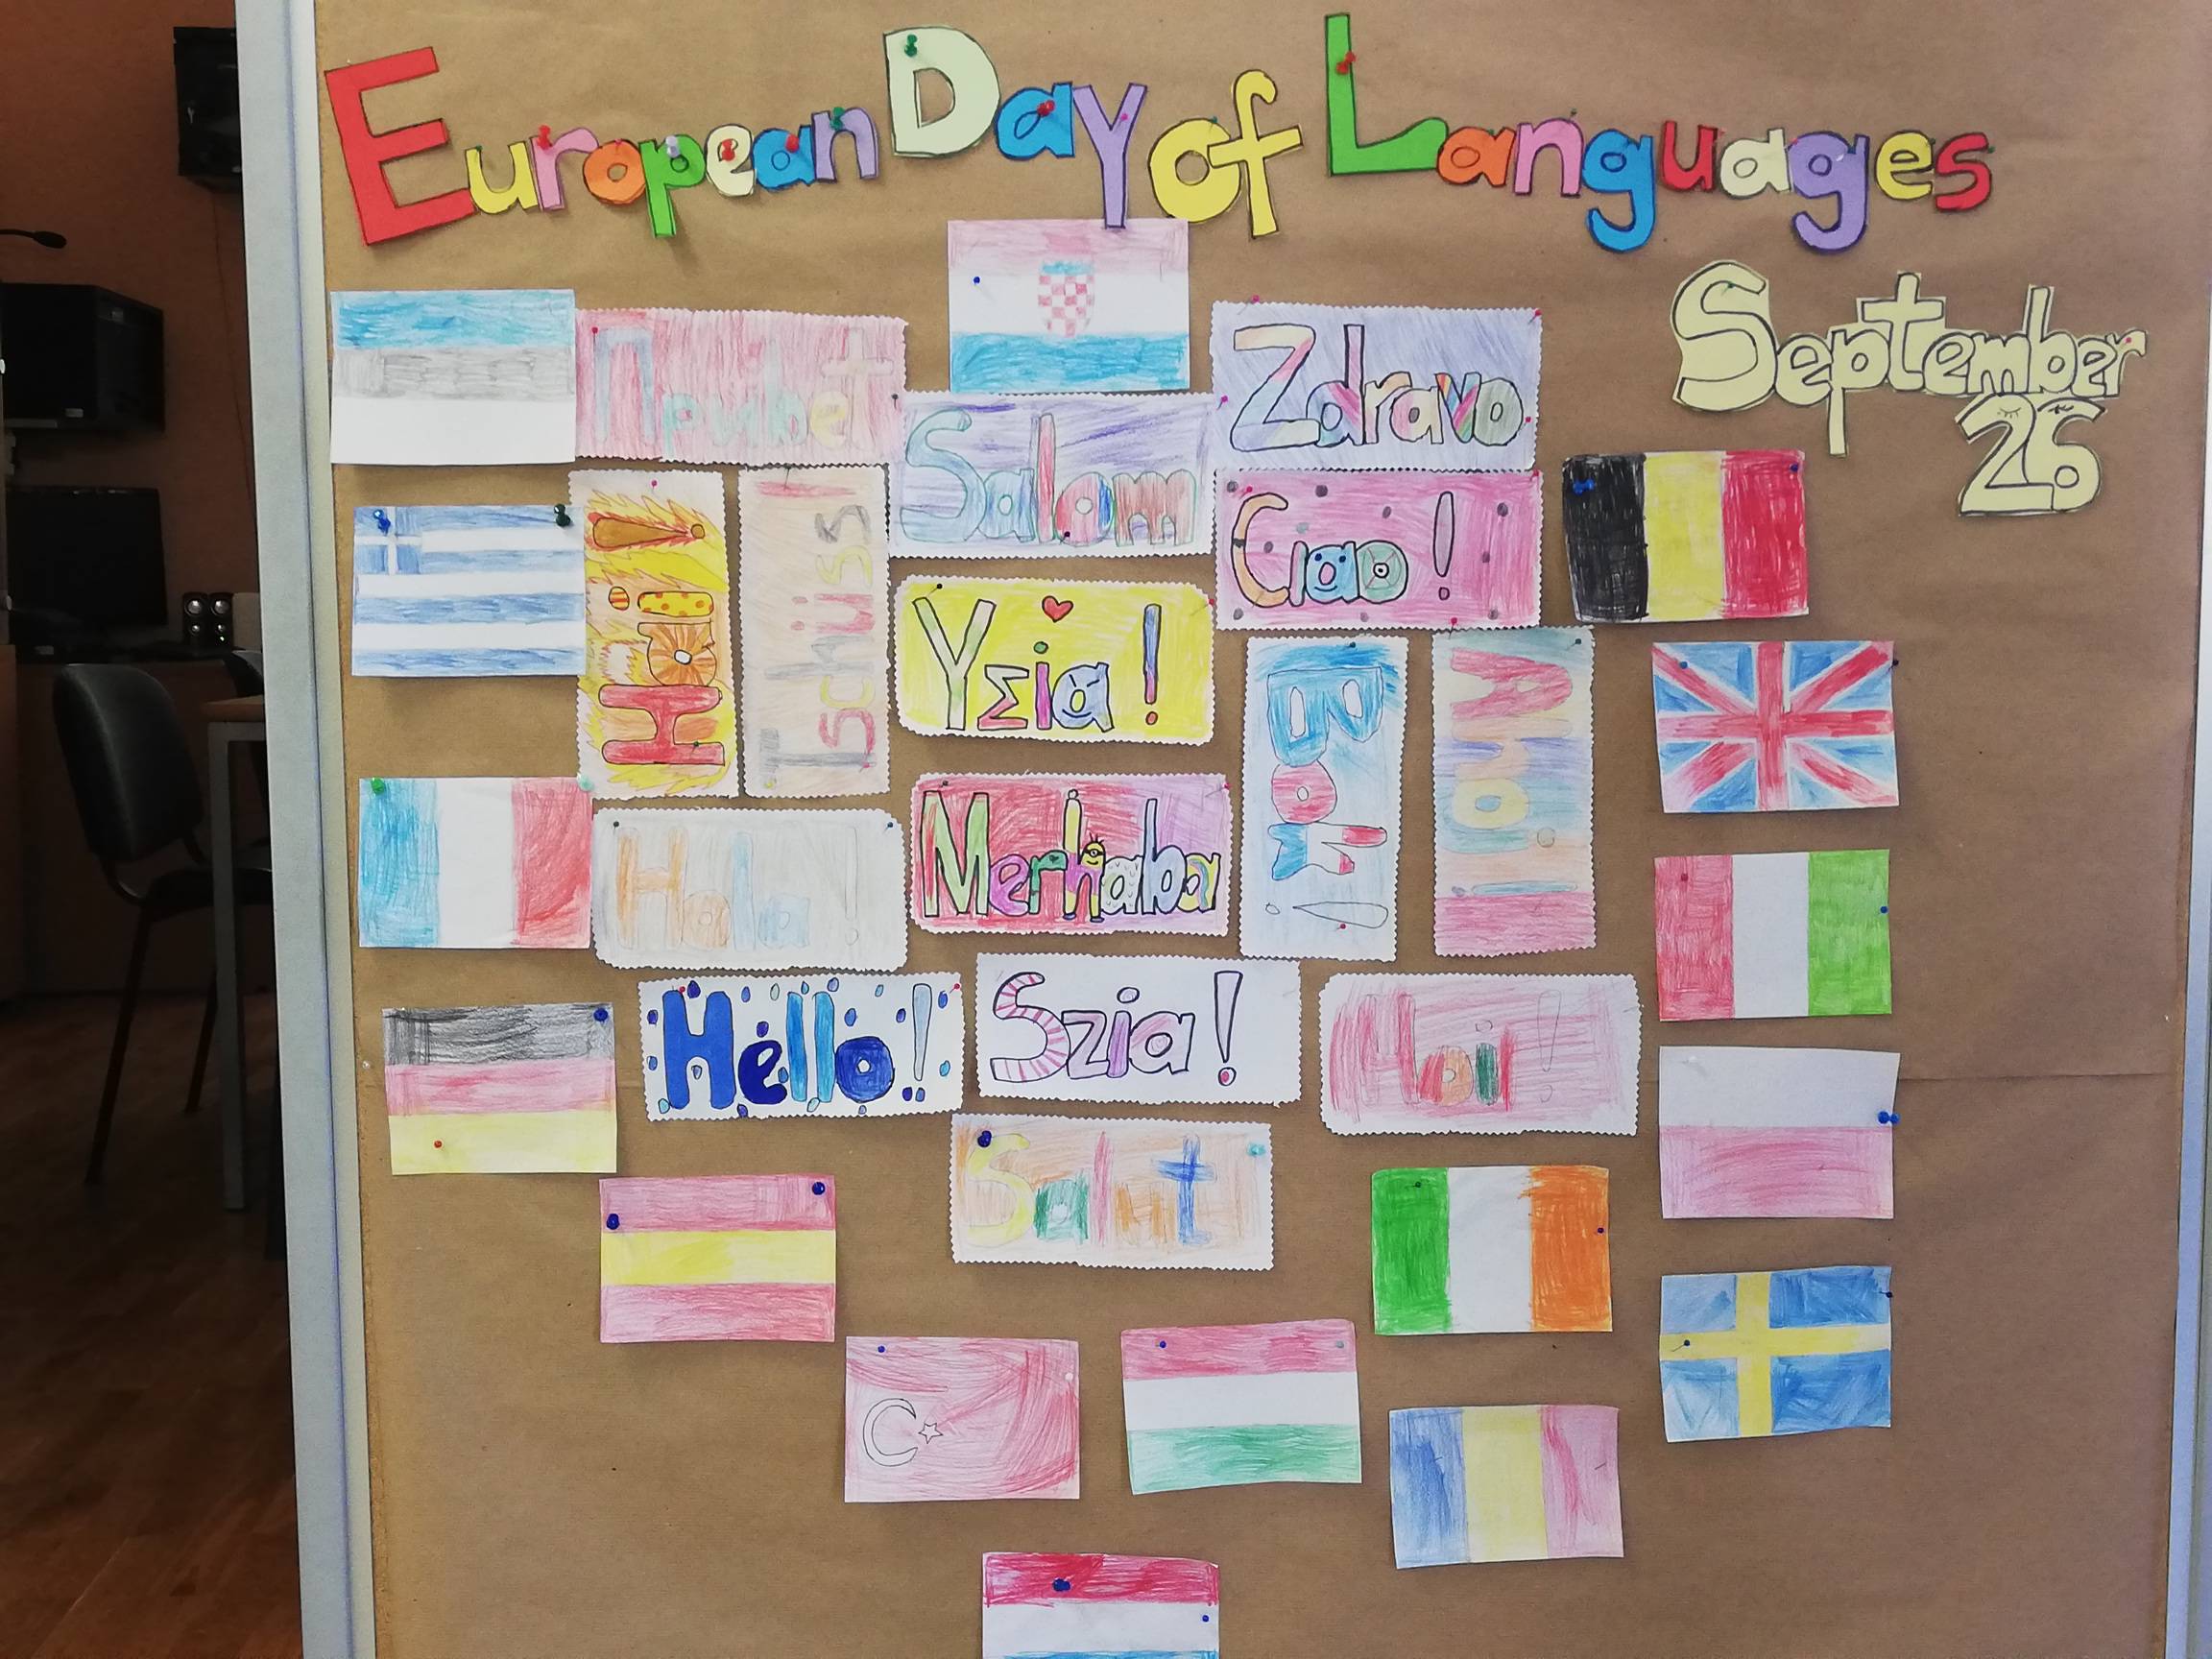 European Day of Languages
September
26
Привет
Zdravo
Salom
Ciao!
Hai!
Tschüss!
YΣia!
Bok!
Ahoj!
Hola!
Merhaba
Hello!
Szia!
Hoi!
Salut!